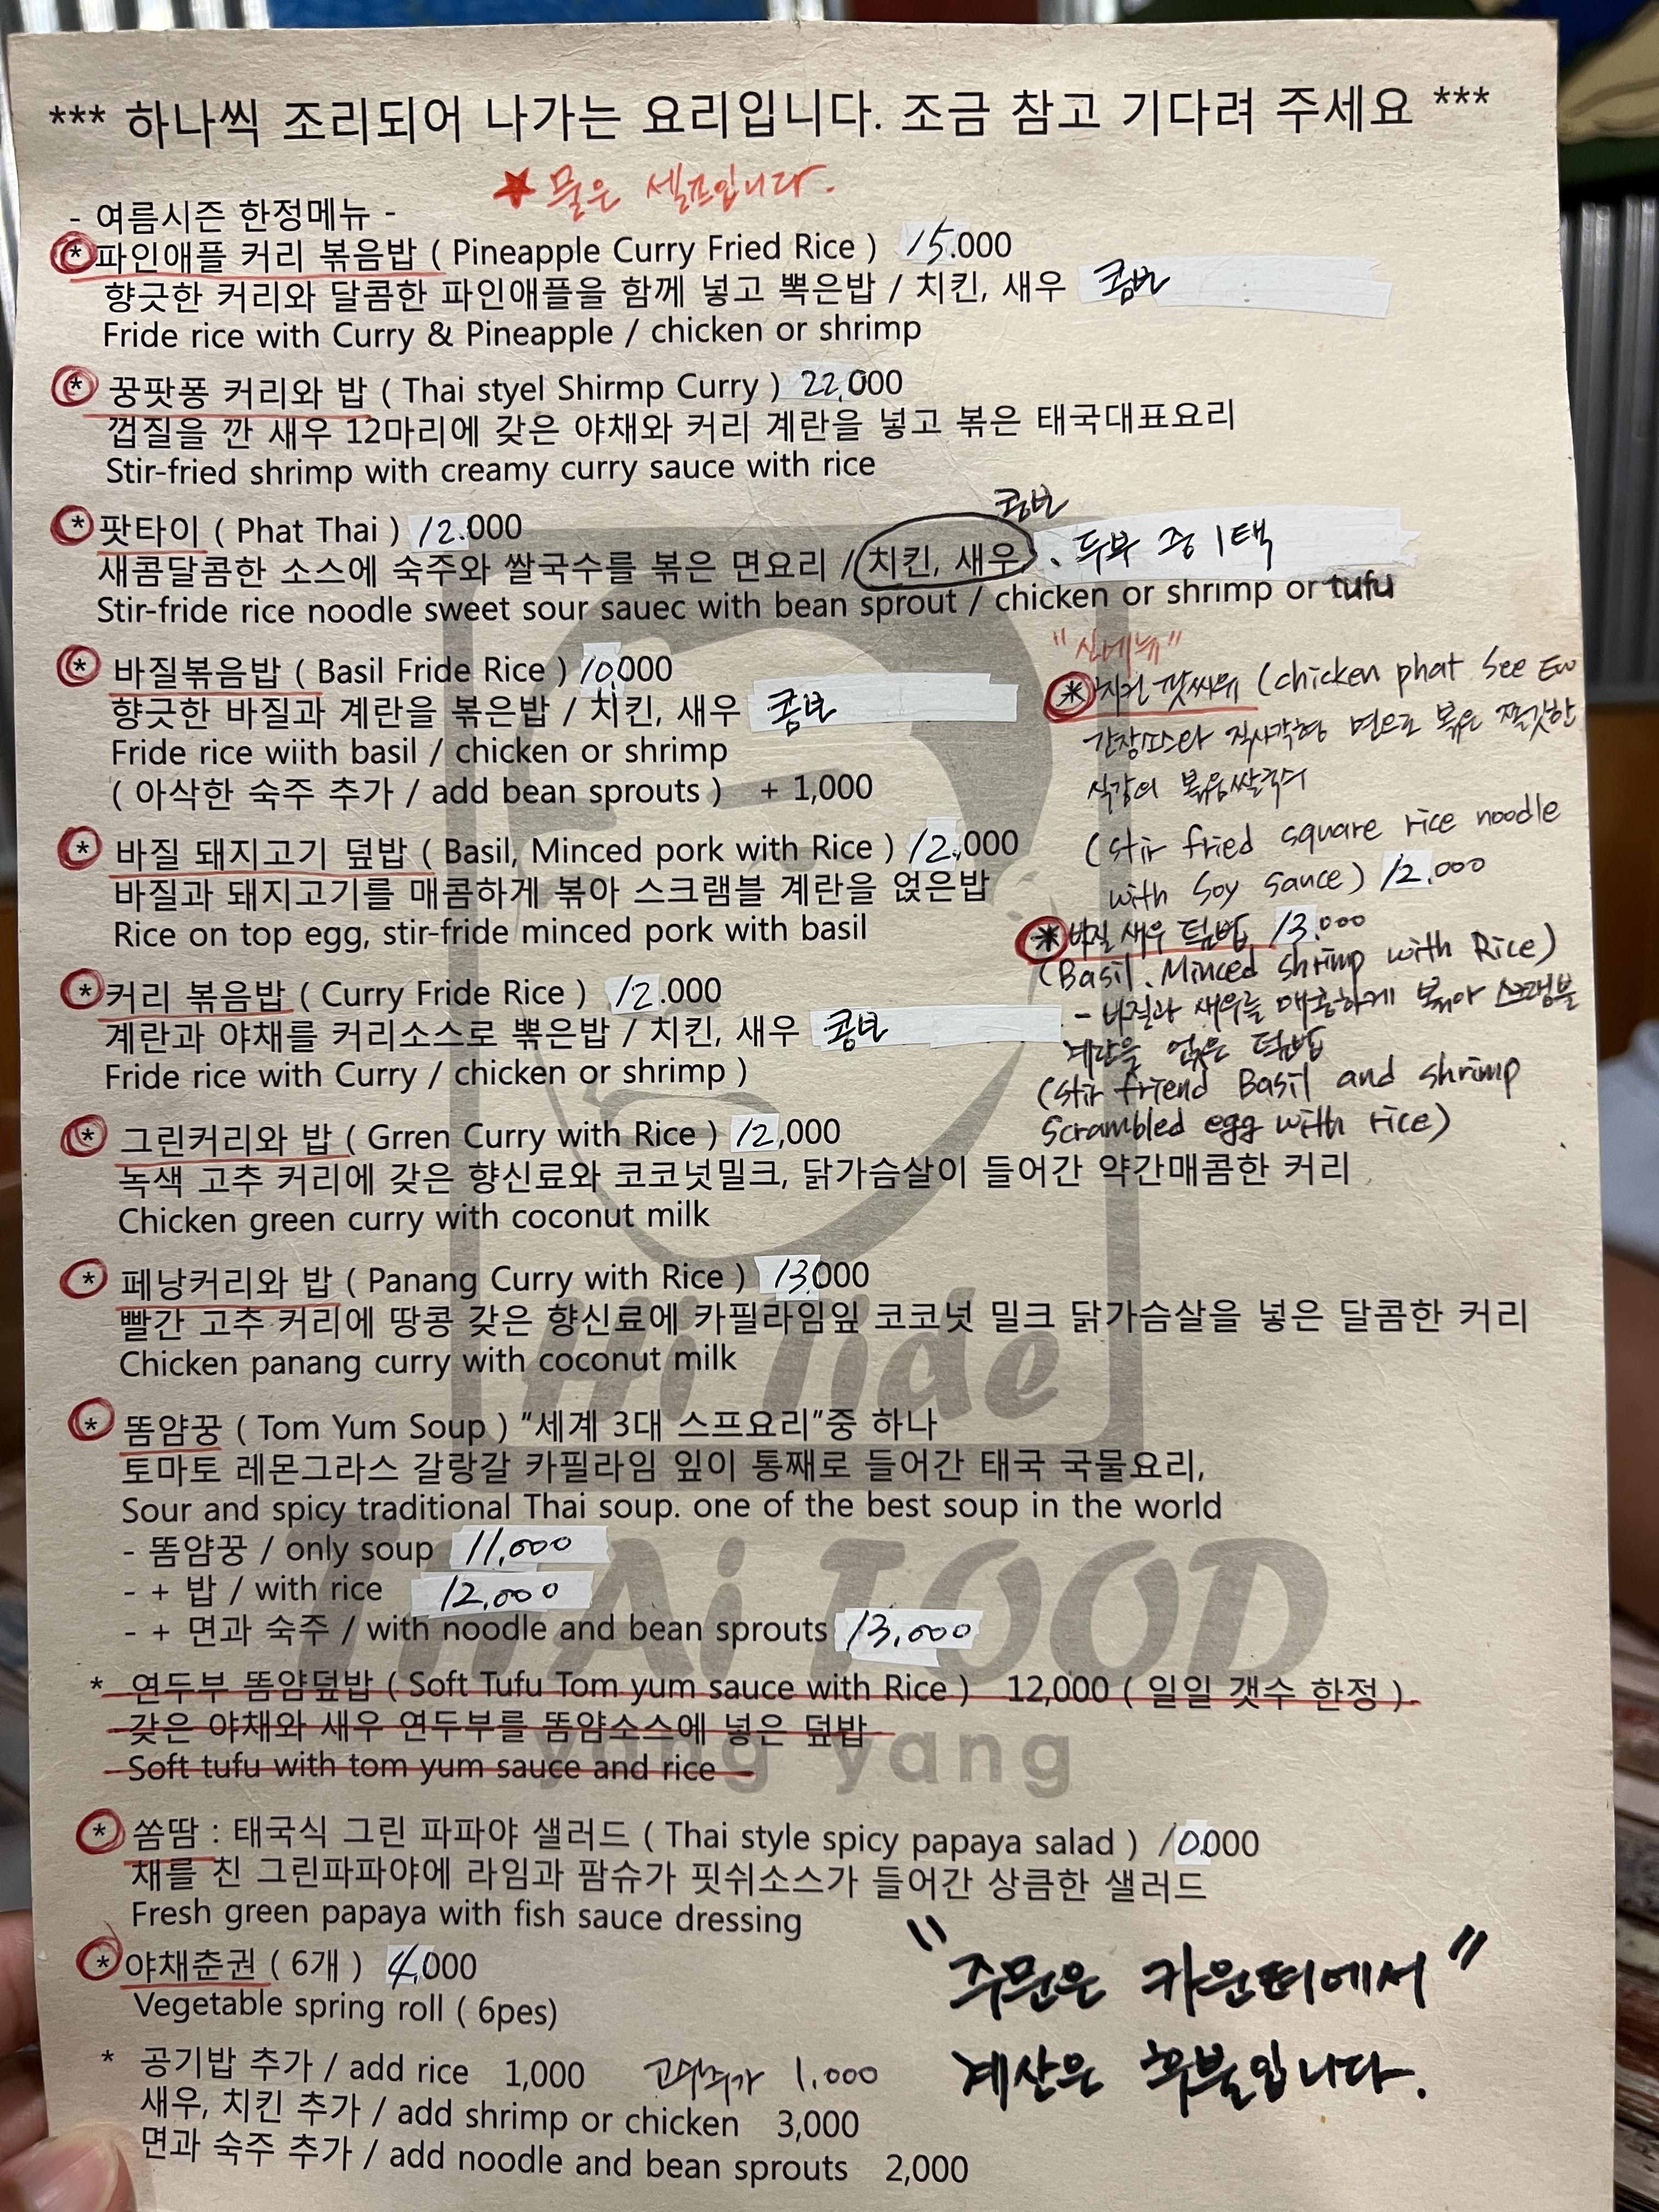 *** 하나씩 조리되어 나가는 요리입니다. 조금 참고 기다려 주세요 ***
★ 물은 셀프입니다.
- 여름시즌 한정메뉴 -
* 파인애플 커리 볶음밥 ( Pineapple Curry Fried Rice ) 15.000
향긋한 커리와 달콤한 파인애플을 함께 넣고 뽁은밥 / 치킨, 새우 콤보
Fride rice with Curry & Pineapple / chicken or shrimp
* 꿍팟퐁 커리와 밥 ( Thai styel Shirmp Curry ) 22,000
껍질을 깐 새우 12마리에 갖은 야채와 커리 계란을 넣고 볶은 태국대표요리
Stir-fried shrimp with creamy curry sauce with rice
콤보
* 팟타이 ( Phat Thai ) 12.000
새콤달콤한 소스에 숙주와 쌀국수를 볶은 면요리 / 치킨, 새우, 두부 중 1택
Stir-fride rice noodle sweet sour sauec with bean sprout / chicken or shrimp or tufu
* 바질볶음밥 ( Basil Fride Rice ) 10,000
향긋한 바질과 계란을 볶은밥 / 치킨, 새우 콤보
Fride rice wiith basil / chicken or shrimp
( 아삭한 숙주 추가 / add bean sprouts ) + 1,000
* 바질 돼지고기 덮밥 ( Basil, Minced pork with Rice ) 12,000
바질과 돼지고기를 매콤하게 볶아 스크램블 계란을 얹은밥
Rice on top egg, stir-fride minced pork with basil
* 커리 볶음밥 ( Curry Fride Rice ) 12.000
계란과 야채를 커리소스로 뽂은밥 / 치킨, 새우 콤보
Fride rice with Curry / chicken or shrimp )
"신메뉴"
* 치킨 팟씨유 (chicken phat See Ew
간장소스와 직사각형 면으로 볶은 쫄깃한
식감의 볶음쌀국수
(stir fried square rice noodle
with Soy sauce) 12.000
* 바질 새우 덮밥 13.000
(Basil. Minced shrimp with Rice)
- 바질과 새우를 매콤하게 볶아 스크램블
계란을 얹은 덮밥
(stir friend Basil and shrimp
Scrambled egg with rice)
* 그린커리와 밥 ( Grren Curry with Rice ) 12,000
녹색 고추 커리에 갖은 향신료와 코코넛밀크, 닭가슴살이 들어간 약간매콤한 커리
Chicken green curry with coconut milk
* 페낭커리와 밥 ( Panang Curry with Rice ) 13.000
빨간 고추 커리에 땅콩 갖은 향신료에 카필라임잎 코코넛 밀크 닭가슴살을 넣은 달콤한 커리
Chicken panang curry with coconut milk
Hi Tide
* 똠얌꿍 ( Tom Yum Soup ) "세계 3대 스프요리"중 하나
토마토 레몬그라스 갈랑갈 카필라임 잎이 통째로 들어간 태국 국물요리,
Sour and spicy traditional Thai soup. one of the best soup in the world
- 똠얌꿍 / only soup 11,000
- + 밥 / with rice 12,000
- + 면과 숙주 / with noodle and bean sprouts 13,000
THAi FOOD
* 연두부 똠얌덮밥 ( Soft Tufu Tom yum sauce with Rice ) 12,000 ( 일일 갯수 한정 )
갖은 야채와 새우 연두부를 똠얌소스에 넣은 덮밥
Soft tufu with tom yum sauce and rice
yang yang
* 쏨땀 : 태국식 그린 파파야 샐러드 ( Thai style spicy papaya salad ) 10,000
채를 친 그린파파야에 라임과 팜슈가 핏쉬소스가 들어간 상큼한 샐러드
Fresh green papaya with fish sauce dressing
* 야채춘권 ( 6개 ) 4,000
Vegetable spring roll ( 6pes)
* 공기밥 추가 / add rice 1,000 고수추가 1.000
새우, 치킨 추가 / add shrimp or chicken 3,000
면과 숙주 추가 / add noodle and bean sprouts 2,000
"주문은 카운터에서"
계산은 후불입니다.